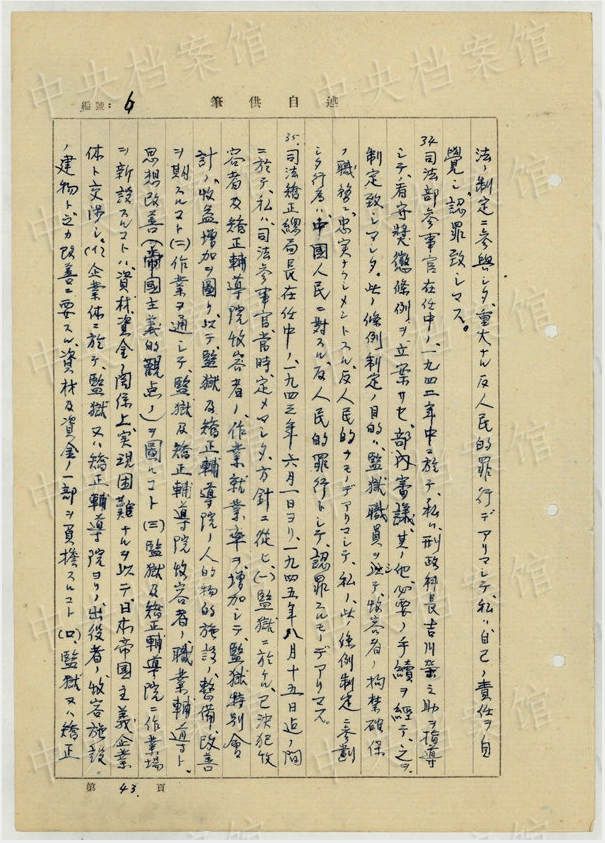 編號：6
筆供自述
法ノ制定ニ参與シタ、重大ナル反人民的罪行デアリマシテ、私ハ自己ノ責任ヲ自
覺シ、認罪致シマス。
34.司法部参事官在任中ノ、一九四二年中ニ於テ、私ハ、刑政科長吉川榮之助ヲ指導
シテ、看守奬懲條例ヲ立案サセ、部內審議、其ノ他必要ノ手續ヲ經テ、之ヲ
制定致シマシタ。此ノ條例制定ノ目的ハ、監獄職員ヲシテ、收容者ノ拘禁確保
ノ職務ニ忠実ナラシメントスル、反人民的ナモノデアリマシテ、私ノ、此ノ條例制定ニ参劃
シタ行為ハ、中國人民ニ對スル、反人民的罪行トシテ、認罪スルモノデアリマス。
35.司法矯正總局長在任中ノ、一九四三年六月一日ヨリ、一九四五年八月十五日迄ノ間
ニ於テ、私ハ、司法参事官當時、定メマシタ、方針ニ從ヒ、(一)監獄ニ於ケル、已決犯收
容者及矯正輔導院收容者ノ、作業就業率ヲ增加シテ、監獄特別會
計ノ、收益增加ヲ圖リ、以テ、監獄及矯正輔導院ノ人的物的施設ノ、整備改善
ヲ期スルコト(二)作業ヲ通シテ、監獄及矯正輔導院收容者ノ、職業ノ輔導ト、
思想改善(帝國主義的觀点ノ)ヲ圖ルコト(三)監獄及矯正輔導院ニ作業場
ヲ新設スルコトハ、資材、資金ノ関係上、実現困難ナルヲ以テ、日本帝國主義企業
体ト交渉シ、(イ)企業体ニ於テ、監獄又ハ矯正輔導院ヨリノ出役者ノ、收容施設
ノ建物ト之カ改善ニ要スル、資材及資金ノ一部ヲ負擔スルコト(ロ)、監獄又ハ矯正
第43.頁
中央档案馆